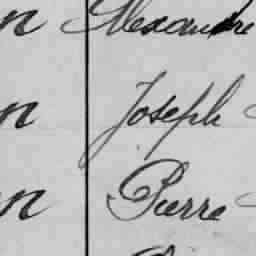 n Alexandre
n Joseph
n Pierre